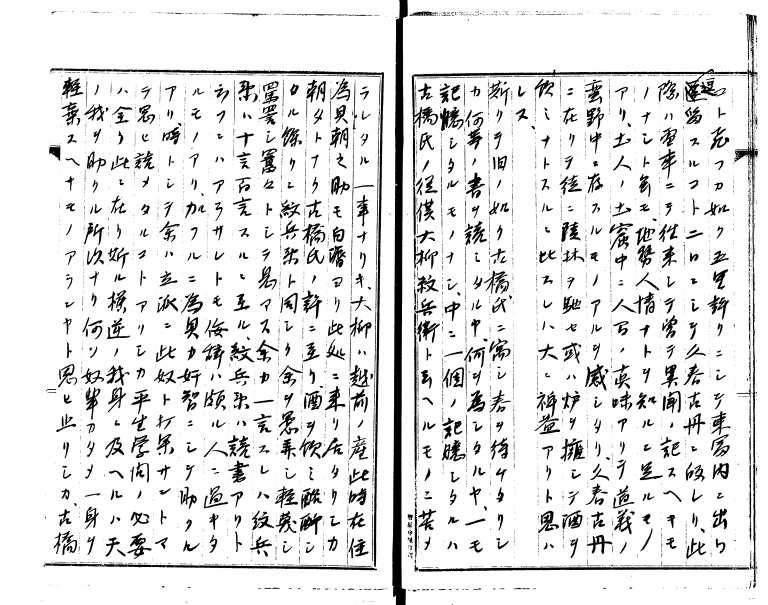 ト志フカ如ク五里許リニシテ東富内ニ出ツ
逗留スルコト二ロニシテ久春古丹ニ皈レリ、此
際ハ軍事ニテ往来シテ常テ異聞ノ記スヘキモ
ノナシト雖モ、地勢人情ナトヲ知ルニ足ルモノ
アリ、土人ノ土窟中ニ人間ノ真味アリテ道義ノ
蛮野中ニ存スルモノアルヲ感シタリ、久春古丹
ニ在リテ徒ニ陸林ヲ馳セ或ハ炉ヲ擁シテ酒ヲ
飲ミナトスルニ比スレハ大ニ裨益アリト思ハ
レス、
斯クテ旧ノ如ク古橋氏ニ寓シ春ヲ待ケタリシ
カ何等ノ書ヲ読ミタルヤ、何ヲ為シタルヤ、一モ
記憶シタルモノナシ、中ニ一個ノ記臆シタルハ
古橋氏ノ従僕大柳紋兵衛ト云ヘルモノニ苦メ
ラレタル一事ナリキ、大柳ハ越前ノ産此時在住
為貝朝之助モ白濱ヨリ此処ニ来リ居タリシカ
朝夕トナク古橋氏ノ許ニ至リ、酒ヲ飲ミ酩酊シ
タル餘リニ紋兵衆ト同シク余ヲ愚弄シ軽蔑シ
罵詈シ囂々トシテ息マス余カ一言スレハ紋兵
衆ハ十言百言スルニ至ル、紋兵衆ハ読書アリト
云フニハアラサレトモ佞諱ハ頗ル人ニ過キタ
ルモノアリ、加フルニ為貝カ奸智ニシテ助クル
アリ、時トシテ余ハ立派ニ此奴ト打果サントマ
テ思ヒ詰メタルコトアリシカ平生学問ノ必要
ハ全ク此ニ在リ斯ル横逆ノ我身ニ及ヘルハ天
ノ我ヲ助クル所以ナリ何ソ奴輩カタメ一身ヲ
軽棄スヘキモノアランヤト思ヒ止リシカ、古橋